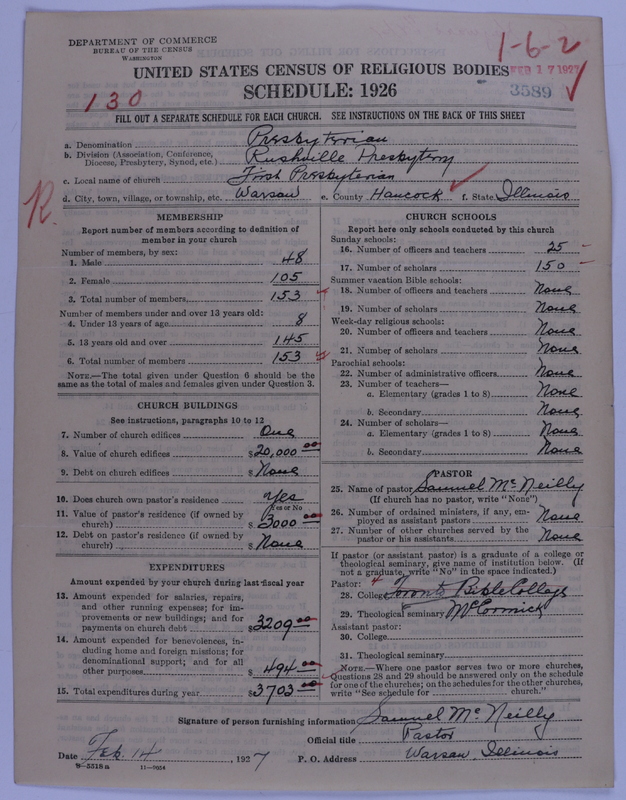 DEPARTMENT OF COMMERCE
BUREAU OF THE CENSUS
WASHINGTON
1-6-2
UNITED STATES CENSUS OF RELIGIOUS BODIES
FEB 17 1927
SCHEDULE: 1926
3589
130
FILL OUT A SEPARATE SCHEDULE FOR EACH CHURCH. SEE INSTRUCTIONS ON THE BACK OF THIS SHEET
a. Denomination Presbyterian
b. Division (Association, Conference, Diocese, Presbytery, Synod, etc.) Rushville Presbytery
c. Local name of church First Presbyterian
d. City, town, village, or township, etc. Warsaw e. County Hancock f. State Illinois
R
MEMBERSHIP
Report number of members according to definition of
member in your church
Number of members, by sex:
1. Male 48
2. Female 105
3. Total number of members 153
Number of members under and over 13 years old:
4. Under 13 years of age 8
5. 13 years old and over 145
6. Total number of members 153
NOTE.—The total given under Question 6 should be
same as the total of males and females given under Question 3.
CHURCH BUILDINGS
See instructions, paragraphs 10 to 12
7. Number of church edifices One
8. Value of church edifices $20,000 00
9. Debt on church edifices $None
10. Does church own pastor's residence Yes
Yes or No
11. Value of pastor's residence (if owned by
church) $3000 00
12. Debt on pastor's residence (if owned by
church) $None
EXPENDITURES
Amount expended by your church during last fiscal year
13. Amount expended for salaries, repairs,
and other running expenses; for im-
provements or new buildings; and for
payments on church debt $3209 00
14. Amount expended for benevolences, in-
cluding home and foreign missions; for
denominational support; and for all
other purposes $494 00
15. Total expenditures during year $3703 00
CHURCH SCHOOLS
Report here only schools conducted by this church
Sunday schools:
16. Number of officers and teachers 25
17. Number of scholars 150
Summer vacation Bible schools:
18. Number of officers and teachers None
19. Number of scholars None
Week-day religious schools:
20. Number of officers and teachers None
21. Number of scholars None
Parochial schools:
22. Number of administrative officers None
23. Number of teachers—
a. Elementary (grades 1 to 8) None
b. Secondary None
24. Number of scholars—
a. Elementary (grades 1 to 8) None
b. Secondary None
PASTOR
25. Name of pastor Samuel McNeilly
(If church has no pastor, write "None")
26. Number of ordained ministers, if any, em-
ployed as assistant pastors None
27. Number of other churches served by the
pastor or his assistants None
If pastor (or assistant pastor) is a graduate of a college or
theological seminary, give name of institution below. (If
not a graduate, write "No" in the space indicated.)
Pastor: 4
28. College Toronto Bible College
29. Theological seminary McCormick
Assistant pastor:
30. College
31. Theological seminary
NOTE.—Where one pastor serves two or more churches,
Questions 28 and 29 should be answered only on the schedule
for one of the churches; on the schedules for the other churches,
write "See schedule for church."
Signature of person furnishing information Samuel McNeilly
Official title Pastor
Date Feb 14, 1927 P. O. Address Warsaw Illinois
8-5518 a 11-9054